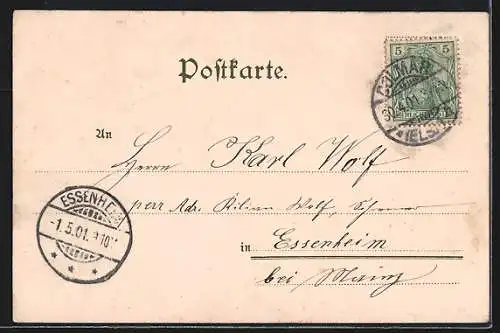 Postkarte.
5 5
COLMAR
30.4.01
(ELS)
An
Herrn Karl Wolf
perr Adr. Kilian Wolf,
in Essenheim
bei Mainz
ESSENHEIM
-1.5.01.
* * *